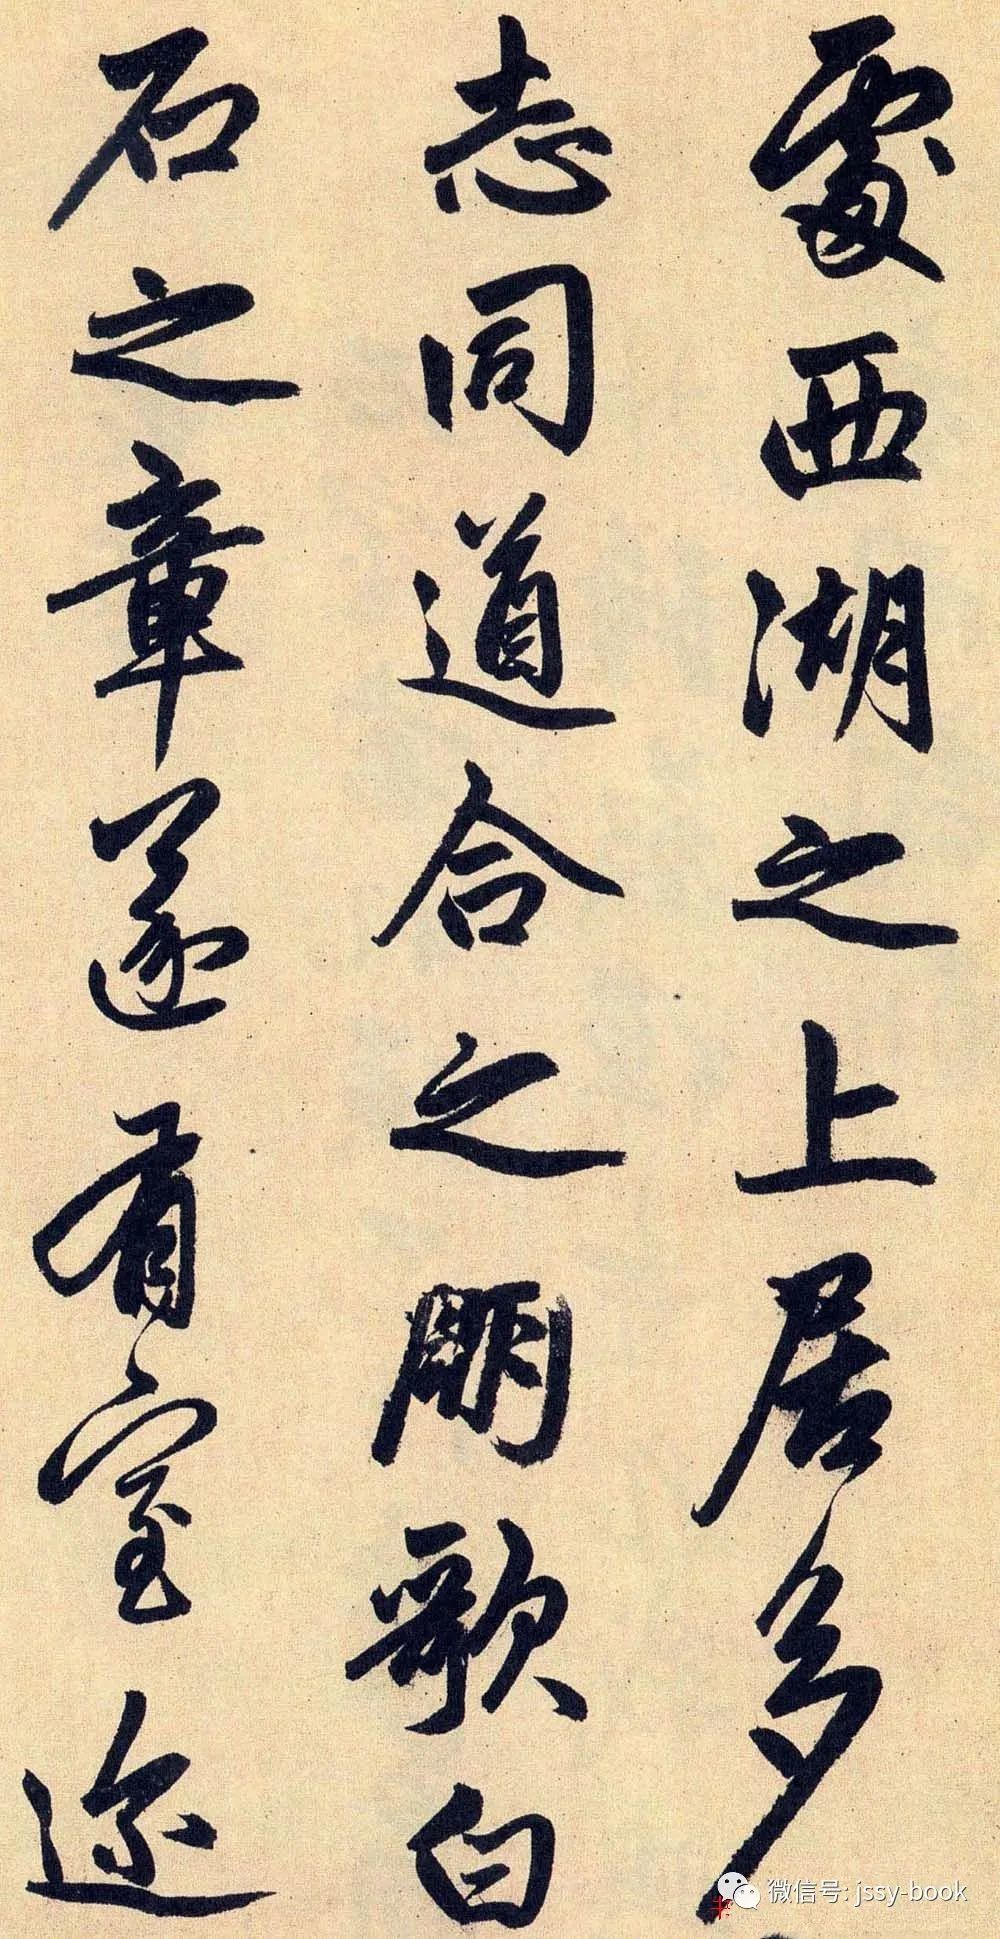 處西湖之上居多
志同道合之朋歌白
石之章遂有室迩
微信号: jssy-book